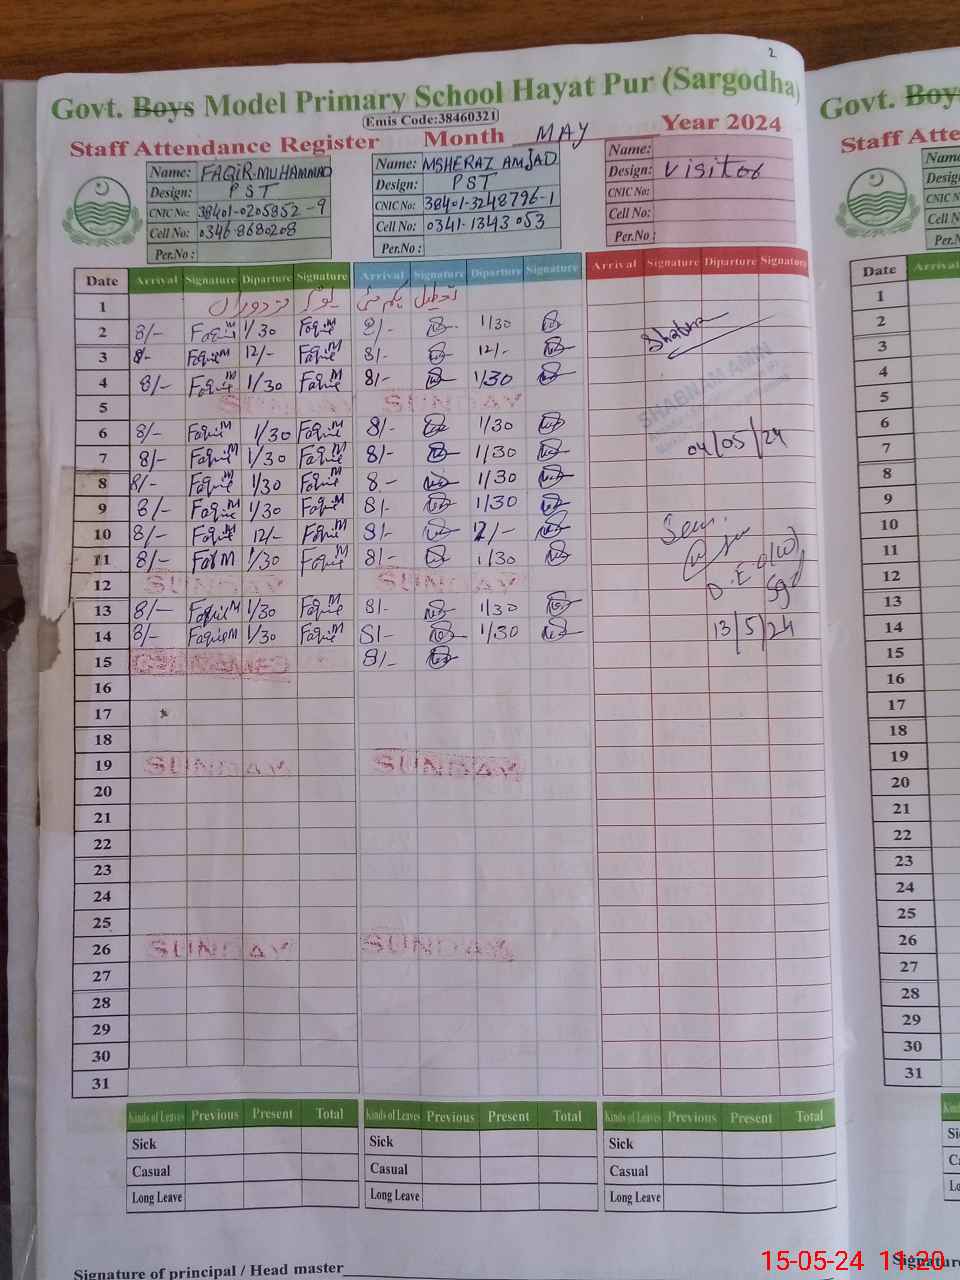 2
Govt. Boys Model Primary School Hayat Pur (Sargodha)
Emis Code:38460321
Staff Attendance Register Month MAY Year 2024
Name: FAQIR.MUHAMMAD
Design: PST
CNIC No: 38401-0205952-9
Cell No: 0346-8680208
Per.No :
Name: MSHERAZ AMJAD
Design: PST
CNIC No: 38401-3248796-1
Cell No: 0341-1343053
Per.No :
Name:
Design: Visitor
CNIC No:
Cell No:
Per.No :
Date Arrival Signature Diparture Signature Arrival Signature Diparture Signature Arrival Signature Diparture Signature
1 تعطیل یکم مئی یوم
2 8/- Faqir M 1/30 Faqir M 8/- 1/30
3 8/- Faqir M 12/- Faqir M 8/- 12/-
4 8/- Faqir M 1/30 Faqir M 8/- 1/30
5 SUNDAY SUNDAY
SHABNAM AMIN
6 8/- Faqir M 1/30 Faqir M 8/- 1/30
7 8/- Faqir M 1/30 Faqir M 8/- 1/30 04/05/24
8 8/- Faqir M 1/30 Faqir M 8 - 1/30
9 8/- Faqir M 1/30 Faqir M 8/- 1/30
10 8/- Faqir M 12/- Faqir M 8/- 12/-
11 8/- Faqir M 1/30 Faqir M 8/- 1/30
12 SUNDAY SUNDAY D.E.O(W)
Sgd
13 8/- Faqir M 1/30 Faqir M 8/- 1/30
14 8/- Faqir M 1/30 Faqir M 8/- 1/30 13/5/24
15 8/-
16
17
18
19 SUNDAY SUNDAY
20
21
22
23
24
25
26 SUNDAY SUNDAY
27
28
29
30
31
Kinds of Leaves Previous Present Total Kinds of Leaves Previous Present Total Kinds of Leaves Previous Present Total
Sick Sick Sick
Casual Casual Casual
Long Leave Long Leave Long Leave
Signature of principal / Head master
Govt. Boys
Staff Atte
Name
Design
CNIC N
Cell N
Per.N
Date Arrival
1
2
3
4
5
6
7
8
9
10
11
12
13
14
15
16
17
18
19
20
21
22
23
24
25
26
27
28
29
30
31
Signature
15-05-24 11:20